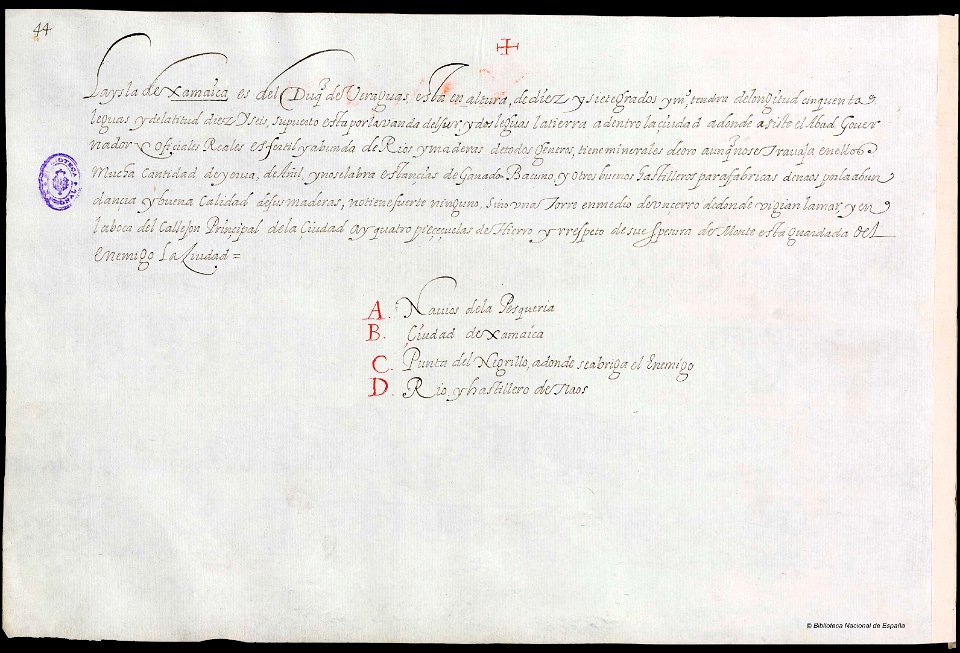 44
La ysla de Xamaica, es del Duq̃ de Veraguas, esta en altura, de diez y siete grados y mº, tendra de longitud cinquenta
leguas y de latitud diez y seis, su puerto esta por la vanda del sur, y dos leguas la tierra a dentro la ciudad adonde asiste el Abad, Gover
nador y oficiales Reales es fertil y abunda de Rios y maderas de todos generos, tiene minerales de oro aunq̃ no se Travaja en ellos
Mucha Cantidad de yerva, de Añil, y no se labra estançias de Ganado Bacuno, y otros buenos hastilleros para fabricas de naos por la abun
dancia y buena Calidad de sus maderas, no tiene fuerte ninguno, sino una Torre en medio de un cerro de donde vigian la mar, y en
la boca del Callejon Principal de la Ciudad ay quatro pieçeçuelas de Hierro y rrespeto de su espesura de Monte esta guardada del
Enemigo La Ciudad =
A. Navios de la Pesqueria
B. Ciudad de Xamaica
C. Punta del Negrillo, adonde se abriga el Enemigo
D. Rio, y hastillero de Naos
© Biblioteca Nacional de España